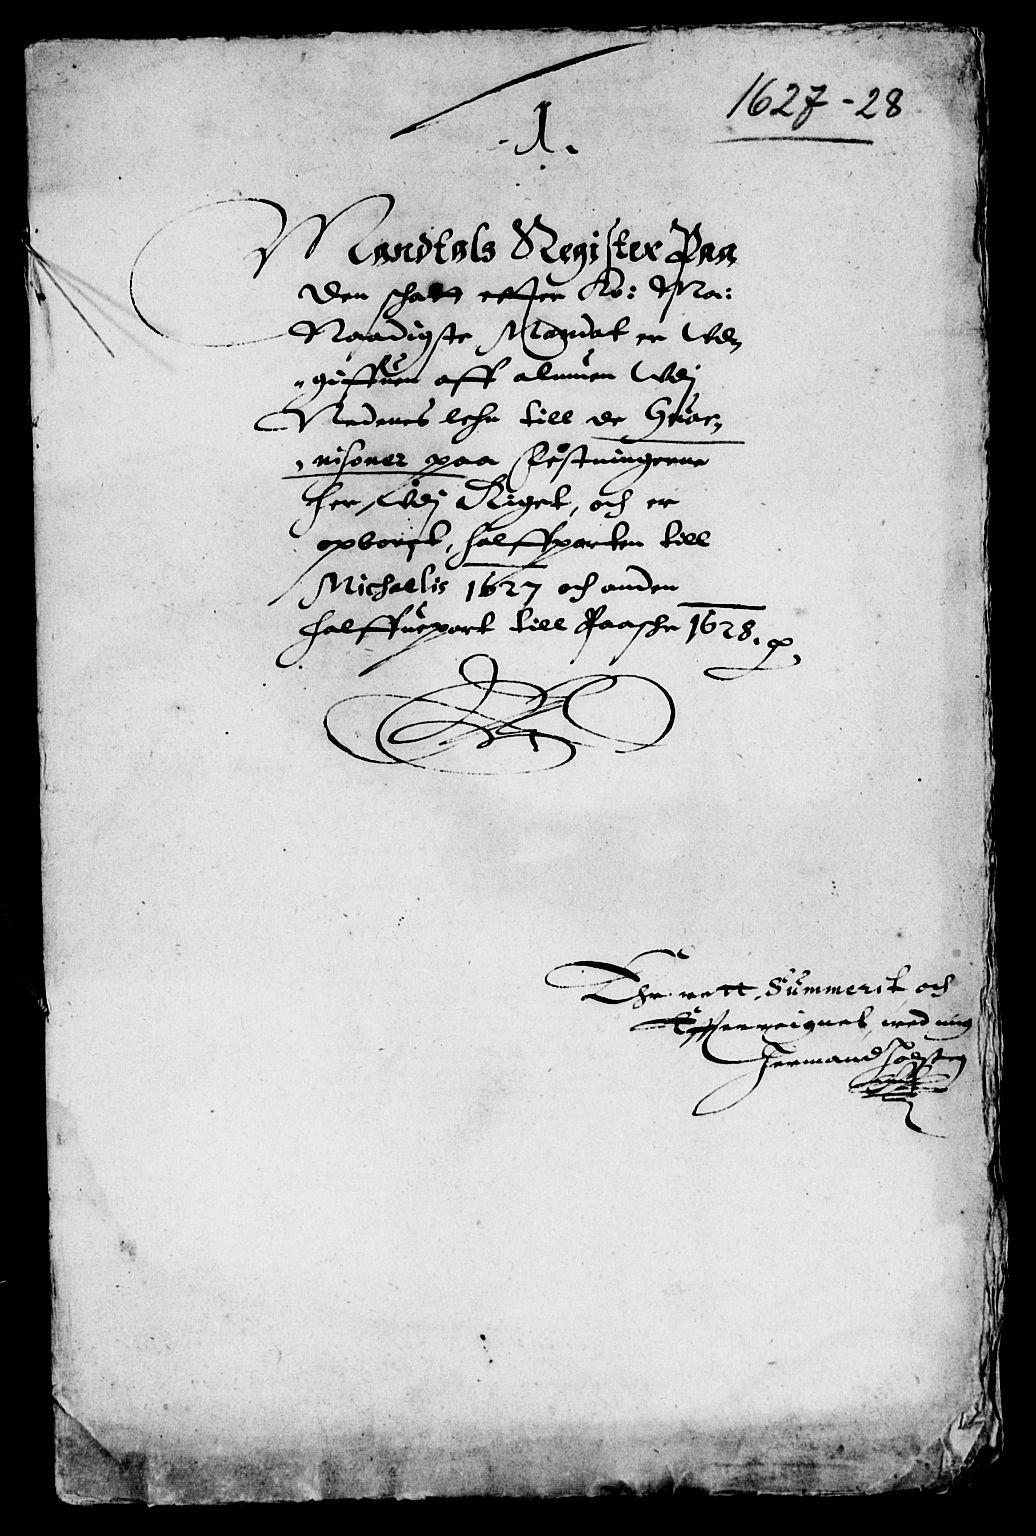 1627-28
1.
Mandtals Register Paa
den schatt effter Ko: Ma:
Naadigste Mandat er Wd,
"giffuen aff almuen Wdj
Nedenes lehn till de Guar,
, nisoner paa Festningerne
her Wdj Riget, och er
opborit, halffparten till
Michaelis 1627 och anden
halffuepart till Paaske 1628. p.
Ehr rett Summerit och
offuereignet, med mig
Hermand Holsten